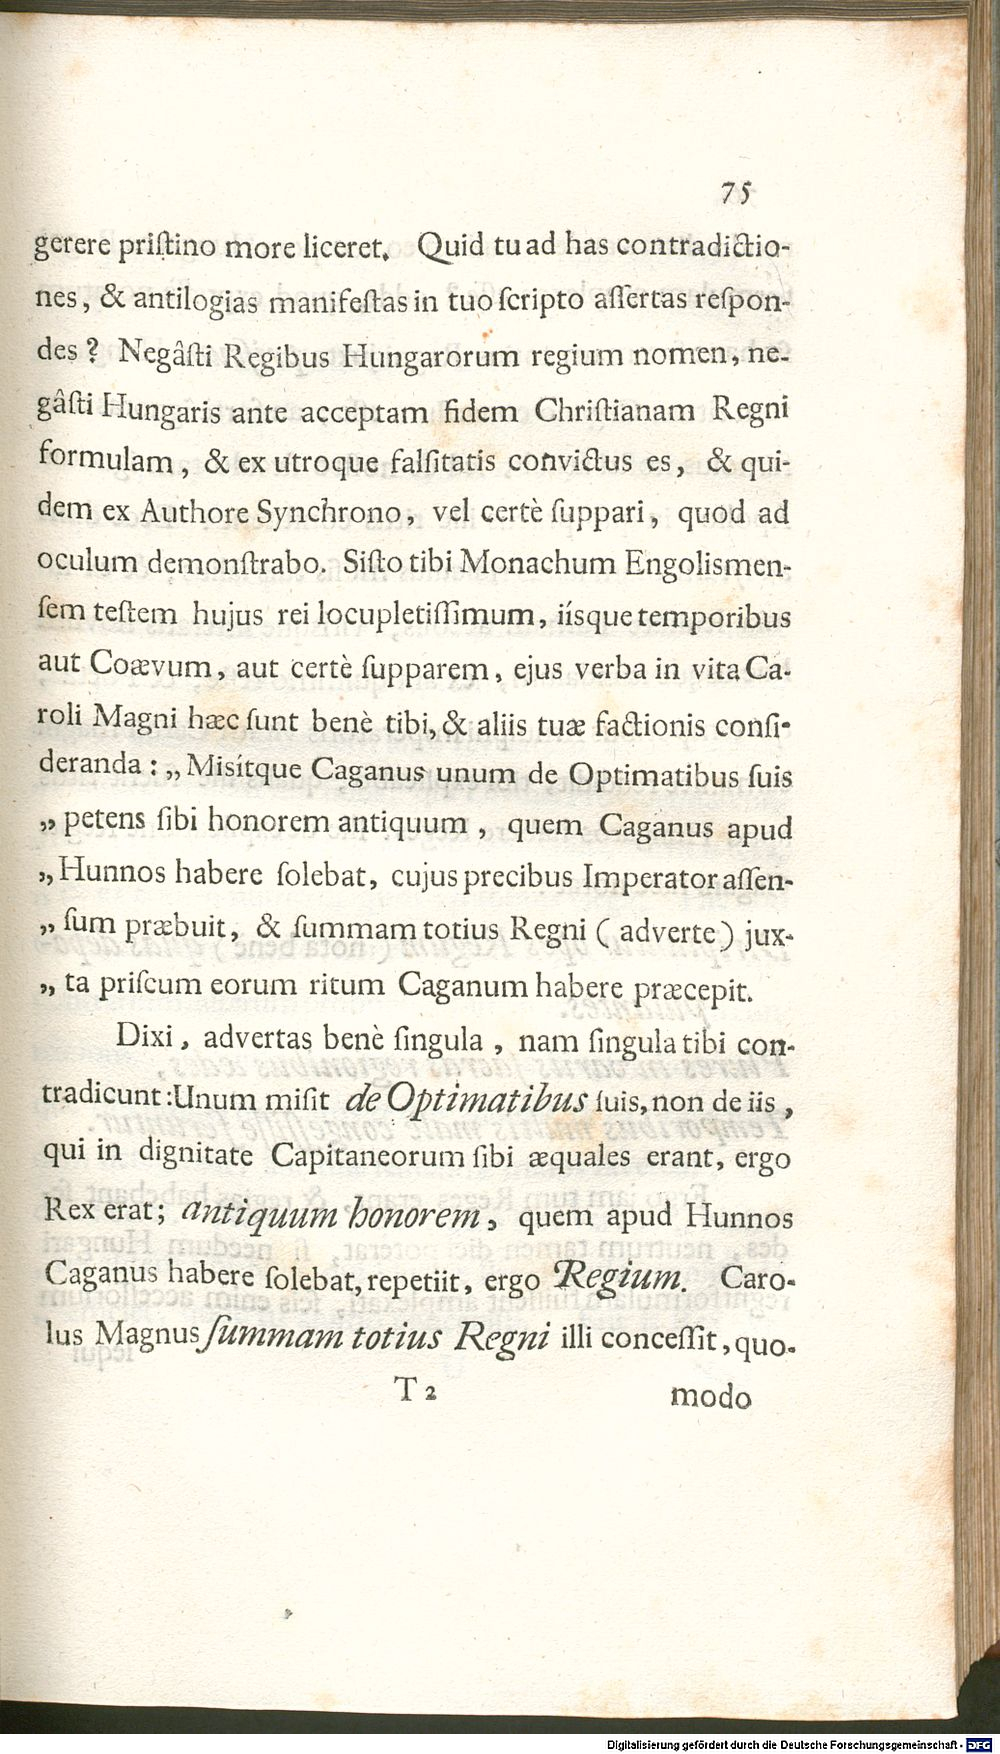 75
gerere priſtino more liceret. Quid tu ad has contradictio-
nes, & antilogias manifeſtas in tuo ſcripto aſſertas reſpon-
des? Negâſti Regibus Hungarorum regium nomen, ne-
gâſti Hungaris ante acceptam fidem Chriſtianam Regni
formulam, & ex utroque falſitatis convictus es, & qui-
dem ex Authore Synchrono, vel certè ſuppari, quod ad
oculum demonſtrabo. Siſto tibi Monachum Engolismen-
ſem teſtem hujus rei locupletiſſimum, iísque temporibus
aut Coævum, aut certè ſupparem, ejus verba in vita Ca-
roli Magni hæc ſunt benè tibi, & aliis tuæ factionis conſi-
deranda: „Misítque Caganus unum de Optimatibus ſuis
„ petens ſibi honorem antiquum, quem Caganus apud
„ Hunnos habere ſolebat, cujus precibus Imperator aſſen-
„ ſum præbuit, & ſummam totius Regni (adverte) jux-
„ ta priſcum eorum ritum Caganum habere præcepit.
Dixi, advertas benè ſingula, nam ſingula tibi con-
tradicunt: Unum miſit de Optimatibus ſuis, non de iis,
qui in dignitate Capitaneorum ſibi æquales erant, ergo
Rex erat; antiquum honorem, quem apud Hunnos
Caganus habere ſolebat, repetiit, ergo Regium. Caro-
lus Magnus ſummam totius Regni illi conceſſit, quo-
T 2 modo
Digitalisierung gefördert durch die Deutsche Forschungsgemeinschaft - DFG